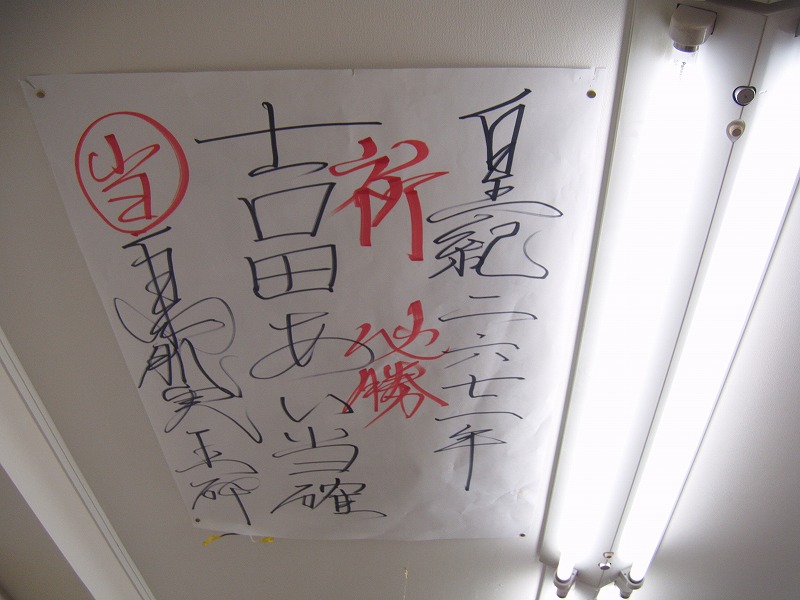 皇紀二六七一年
祈必勝
吉田あい当確
当
実